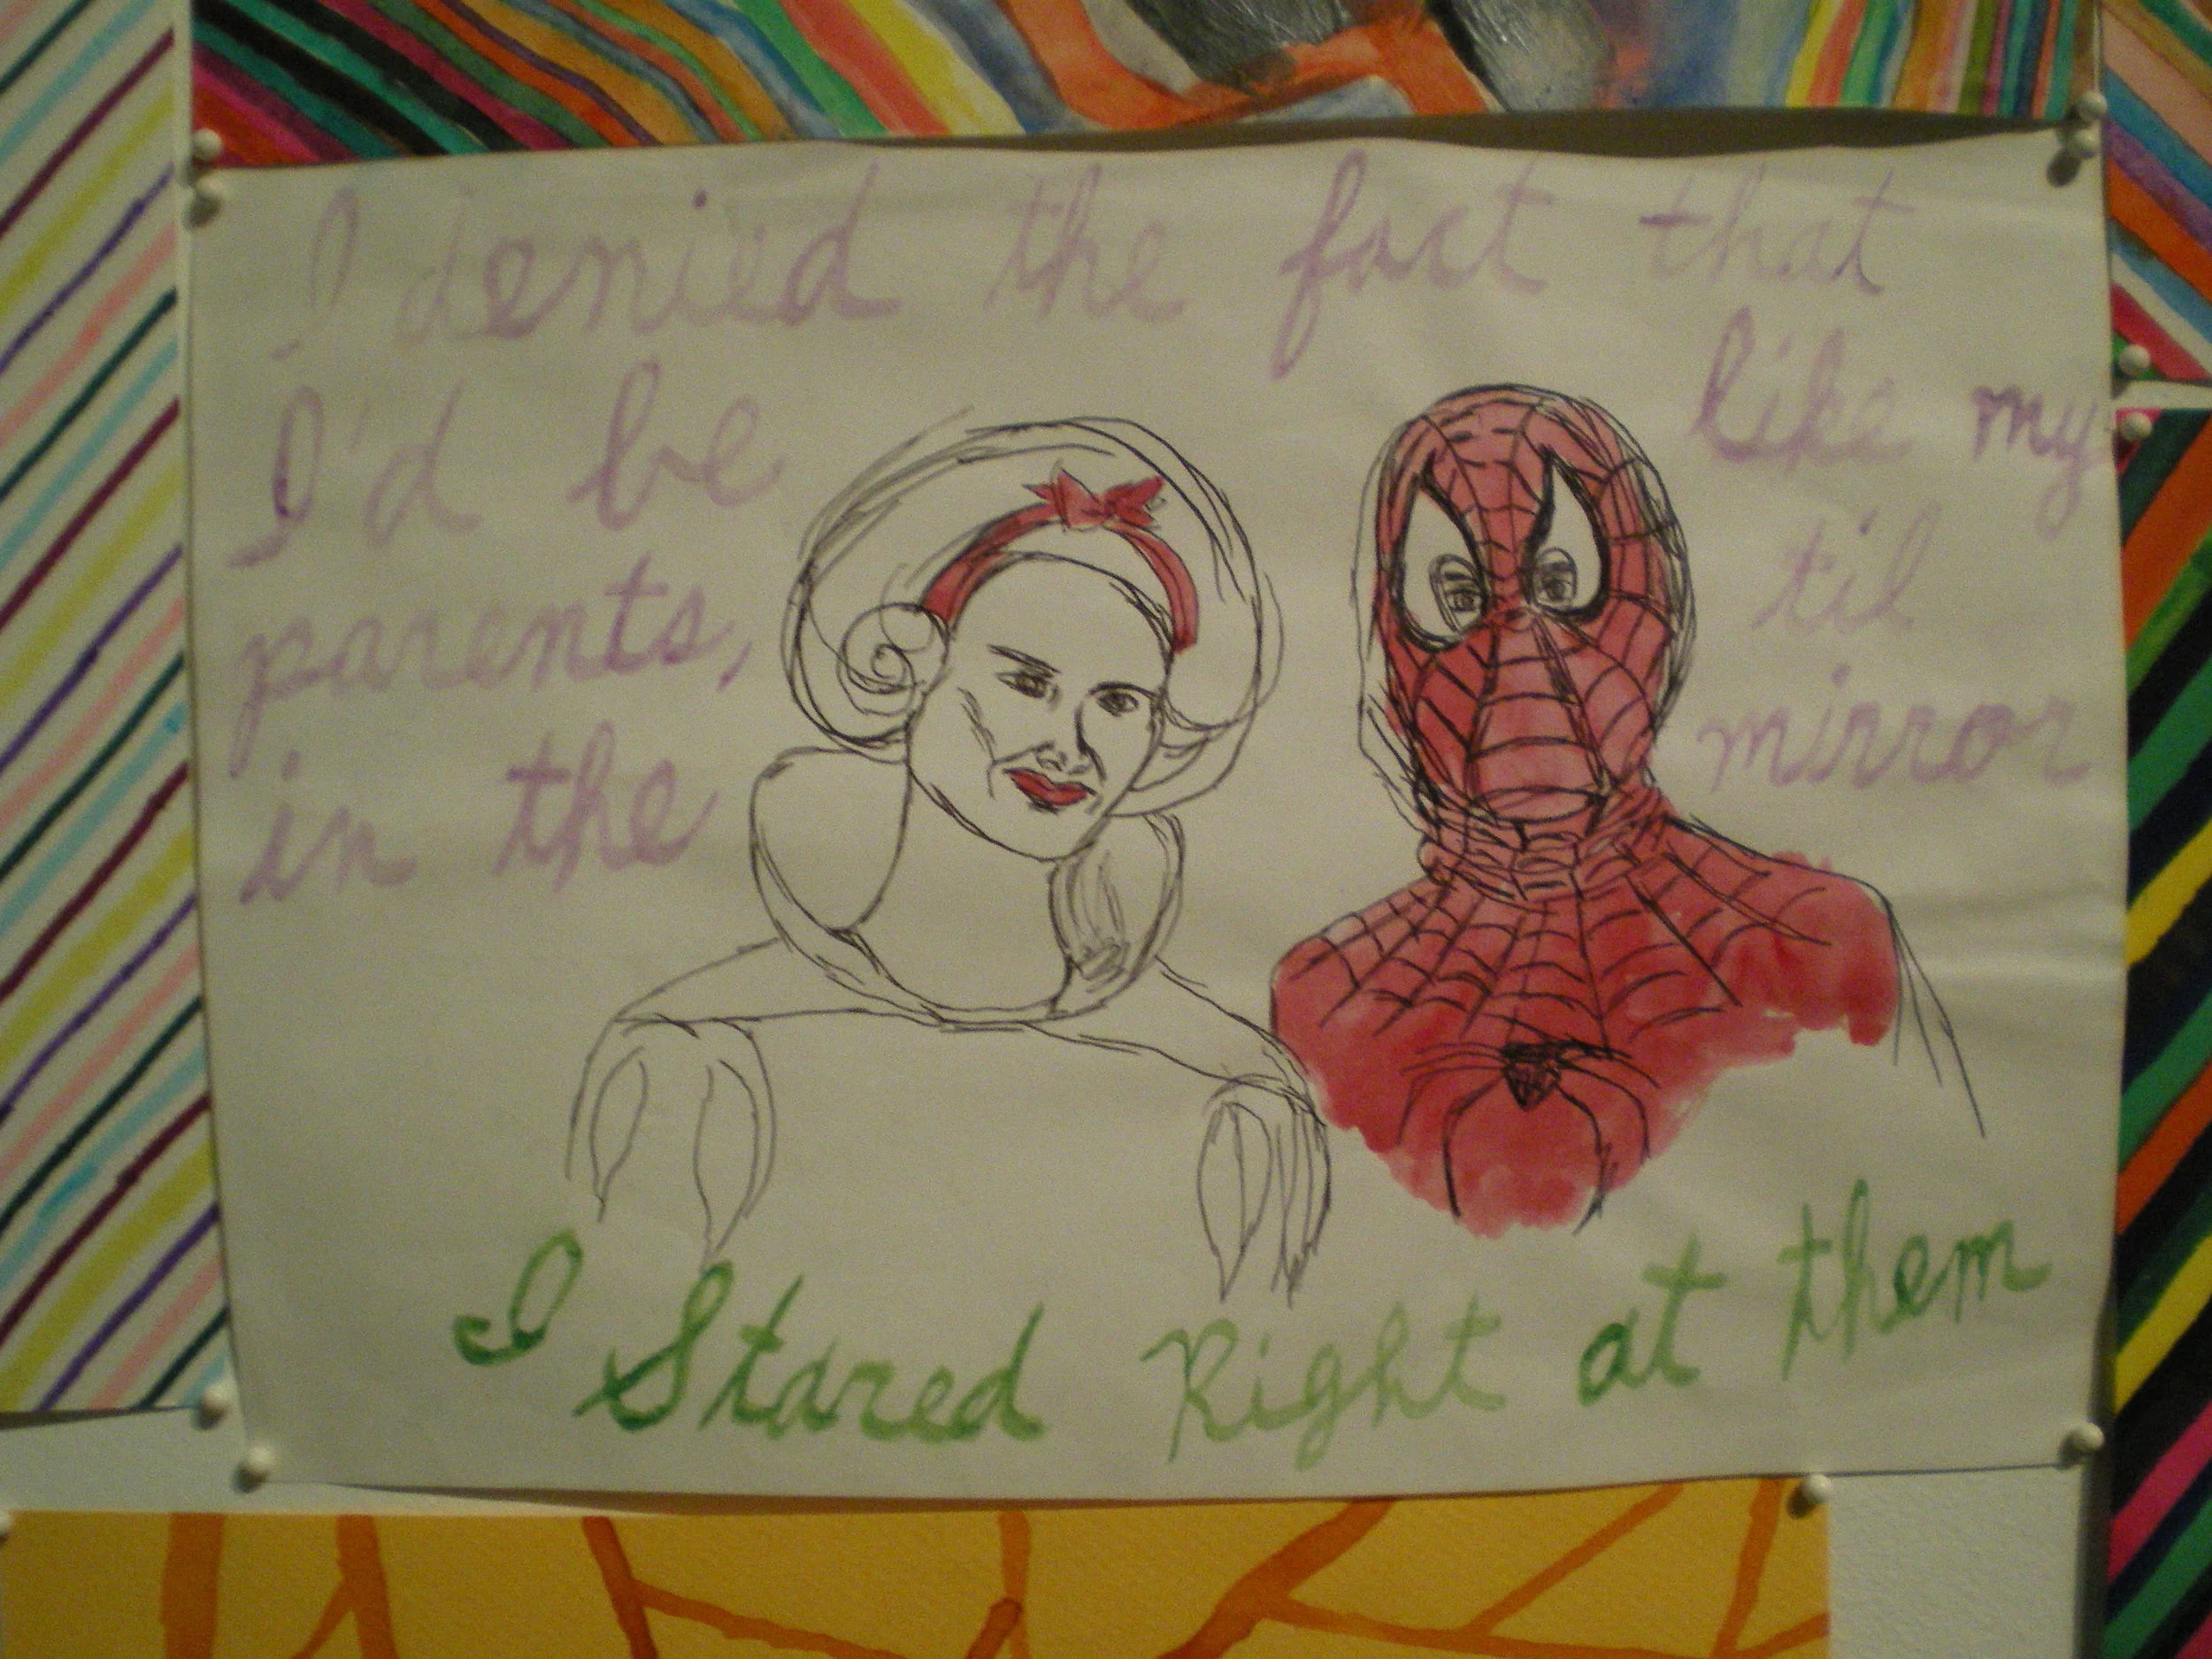 I denied the fact that
I'd be like my
parents, til
in the mirror
I Stared Right at them